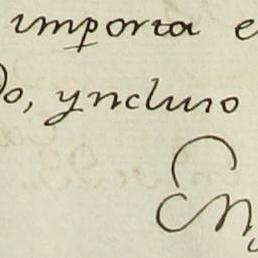 importa e
do, yncluso
En